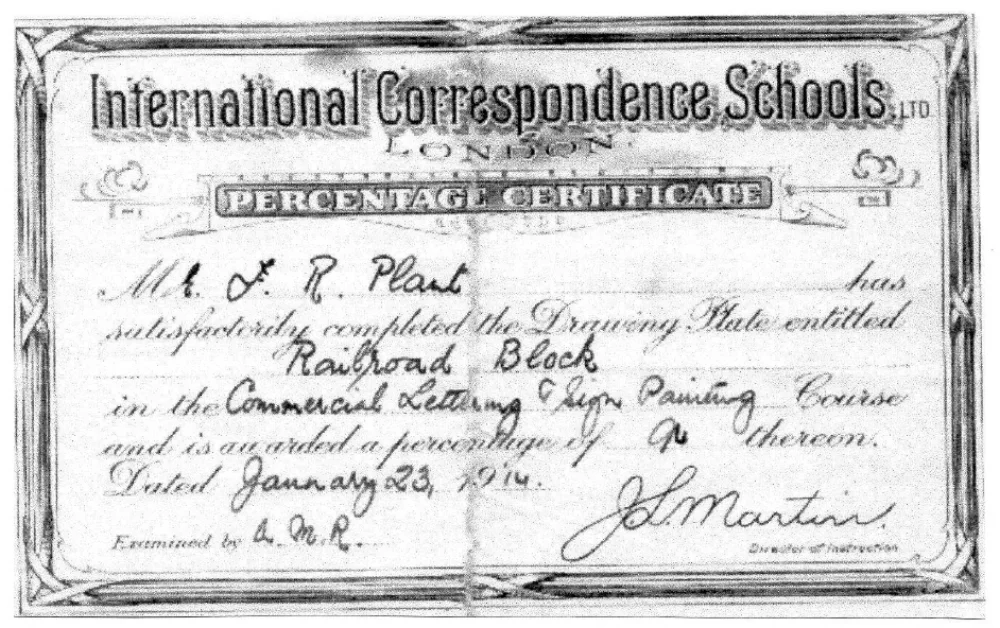 International Correspondence Schools, LTD
LONDON.
PERCENTAGE CERTIFICATE
Mr. F. R. Plant has
satisfactorily completed the Drawing Plate entitled
Railroad Block
in the Commercial Lettering & Sign Painting Course
and is awarded a percentage of thereon.
Dated January 23, 1914.
Examined by A. M. R.
J. L. Martin.
Director of Instruction